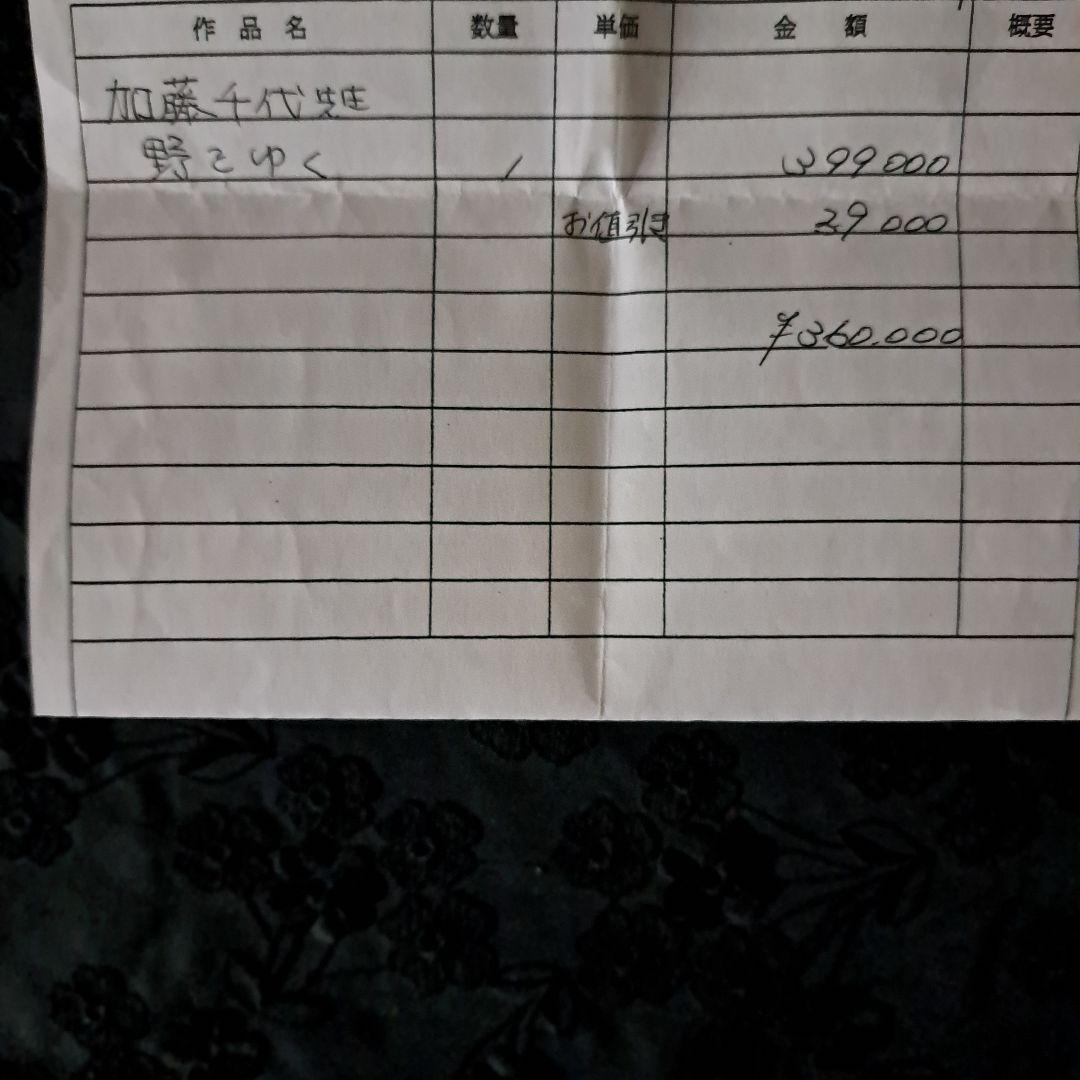 作品名 数量 単価 金額 概要
加藤千代先生
野をゆく 1 399000
お値引き 39000
¥360.000